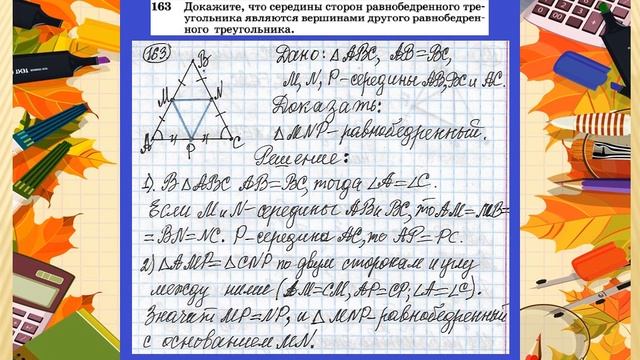 163 Докажите, что середины сторон равнобедренного тре-
угольника являются вершинами другого равнобедрен-
ного треугольника.
163
Дано: △ABC, AB=BC,
M, N, P-середины AB, BC и AC.
Доказать:
△MNP-равнобедренный.
B
M
N
A
P
C
Решение:
1). В △ABC AB=BC, тогда ∠A=∠C.
Если M и N-середины AB и BC, то AM=MB=
=BN=NC. P-середина AC, то AP=PC.
2) △AMP=△CNP по двум сторонам и углу
между ними (AM=CM, AP=CP, ∠A=∠C).
Значит MP=NP, и △MNP-равнобедренный
с основанием MN.